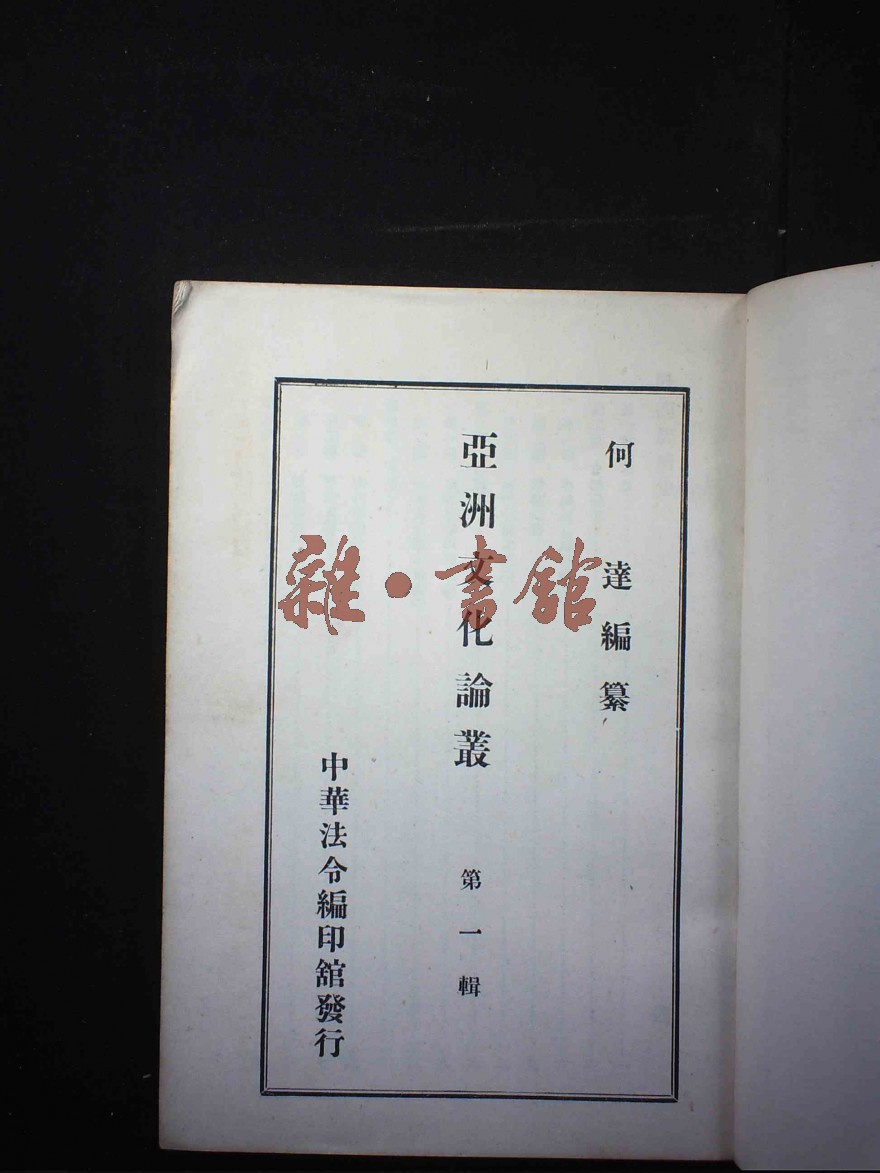 何達編纂
亞洲文化論叢 第一輯
中華法令編印舘發行
雜·書舘